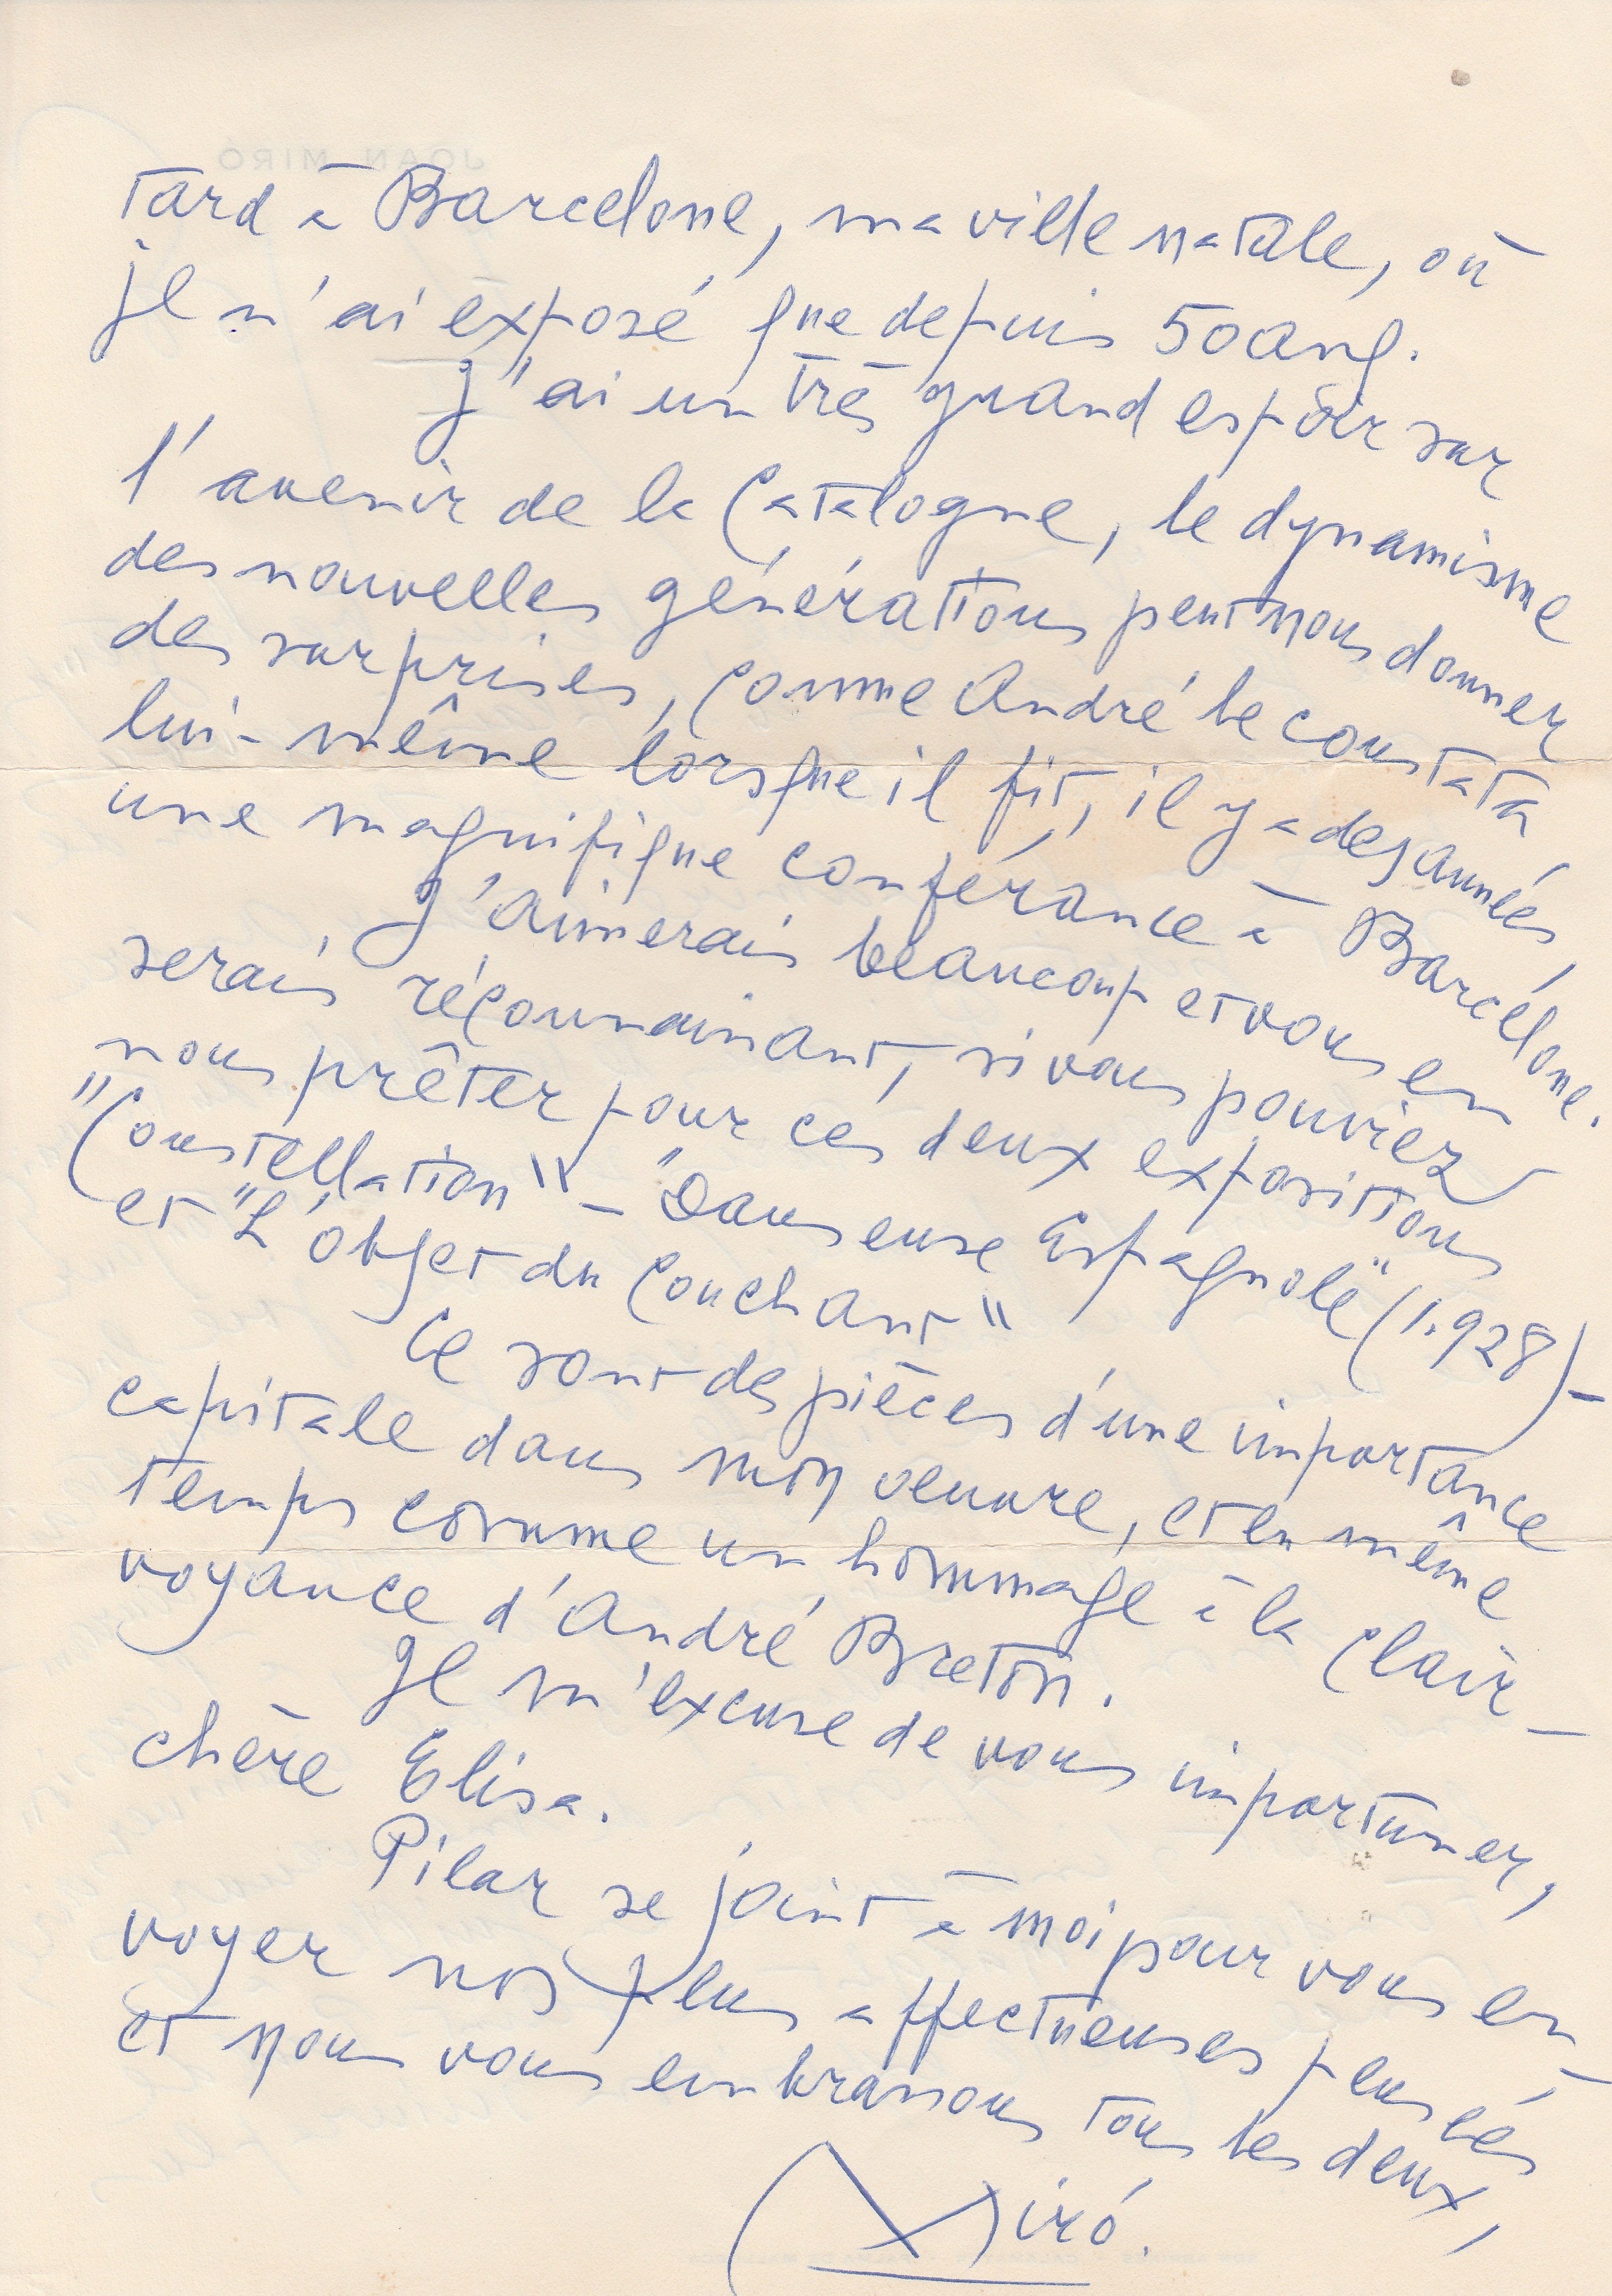 tard à Barcelone, ma ville natale, où
je n'ai éxposé que depuis 50 ans.
J'ai un très grand espoir sur
l'avenir de la Catalogne, le dynamisme
des nouvelles générations peut nous donner
des surprises, comme André le constata
lui-même lorsque il fit, il y a des années,
une magnifique conférance à Barcélone.
J'aimerais beaucoup et vous en
serais réconnaissant, si vous pouviez
nous prêter pour ces deux expositions
"Constellation" - "Danseuse Espagnole" (1.928) -
et "L'objet du Couchant"
Ce sont des pièces d'une importance
capitale dans mon oeuvre, et en même
temps comme un hommage à la clair-
voyance d'André Breton.
Je m'excuse de vous importuner,
chère Elisa.
Pilar se joint à moi pour vous en-
voyer nos plus affectueuses pensées
et nous vous embrassons tous les deux,
Miró.
JOAN MIRÓ